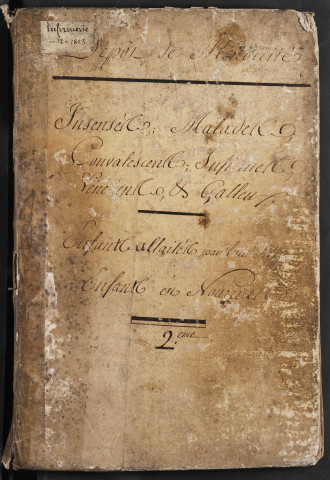 Infirmerie
-12-1813
Dépôt de Mendicité
Insensés; Malades,
Convalescents; Infirmes,
Vénériens, & Galleux
Enfants allaités par leur
Enfants en Nourrice
2.eme